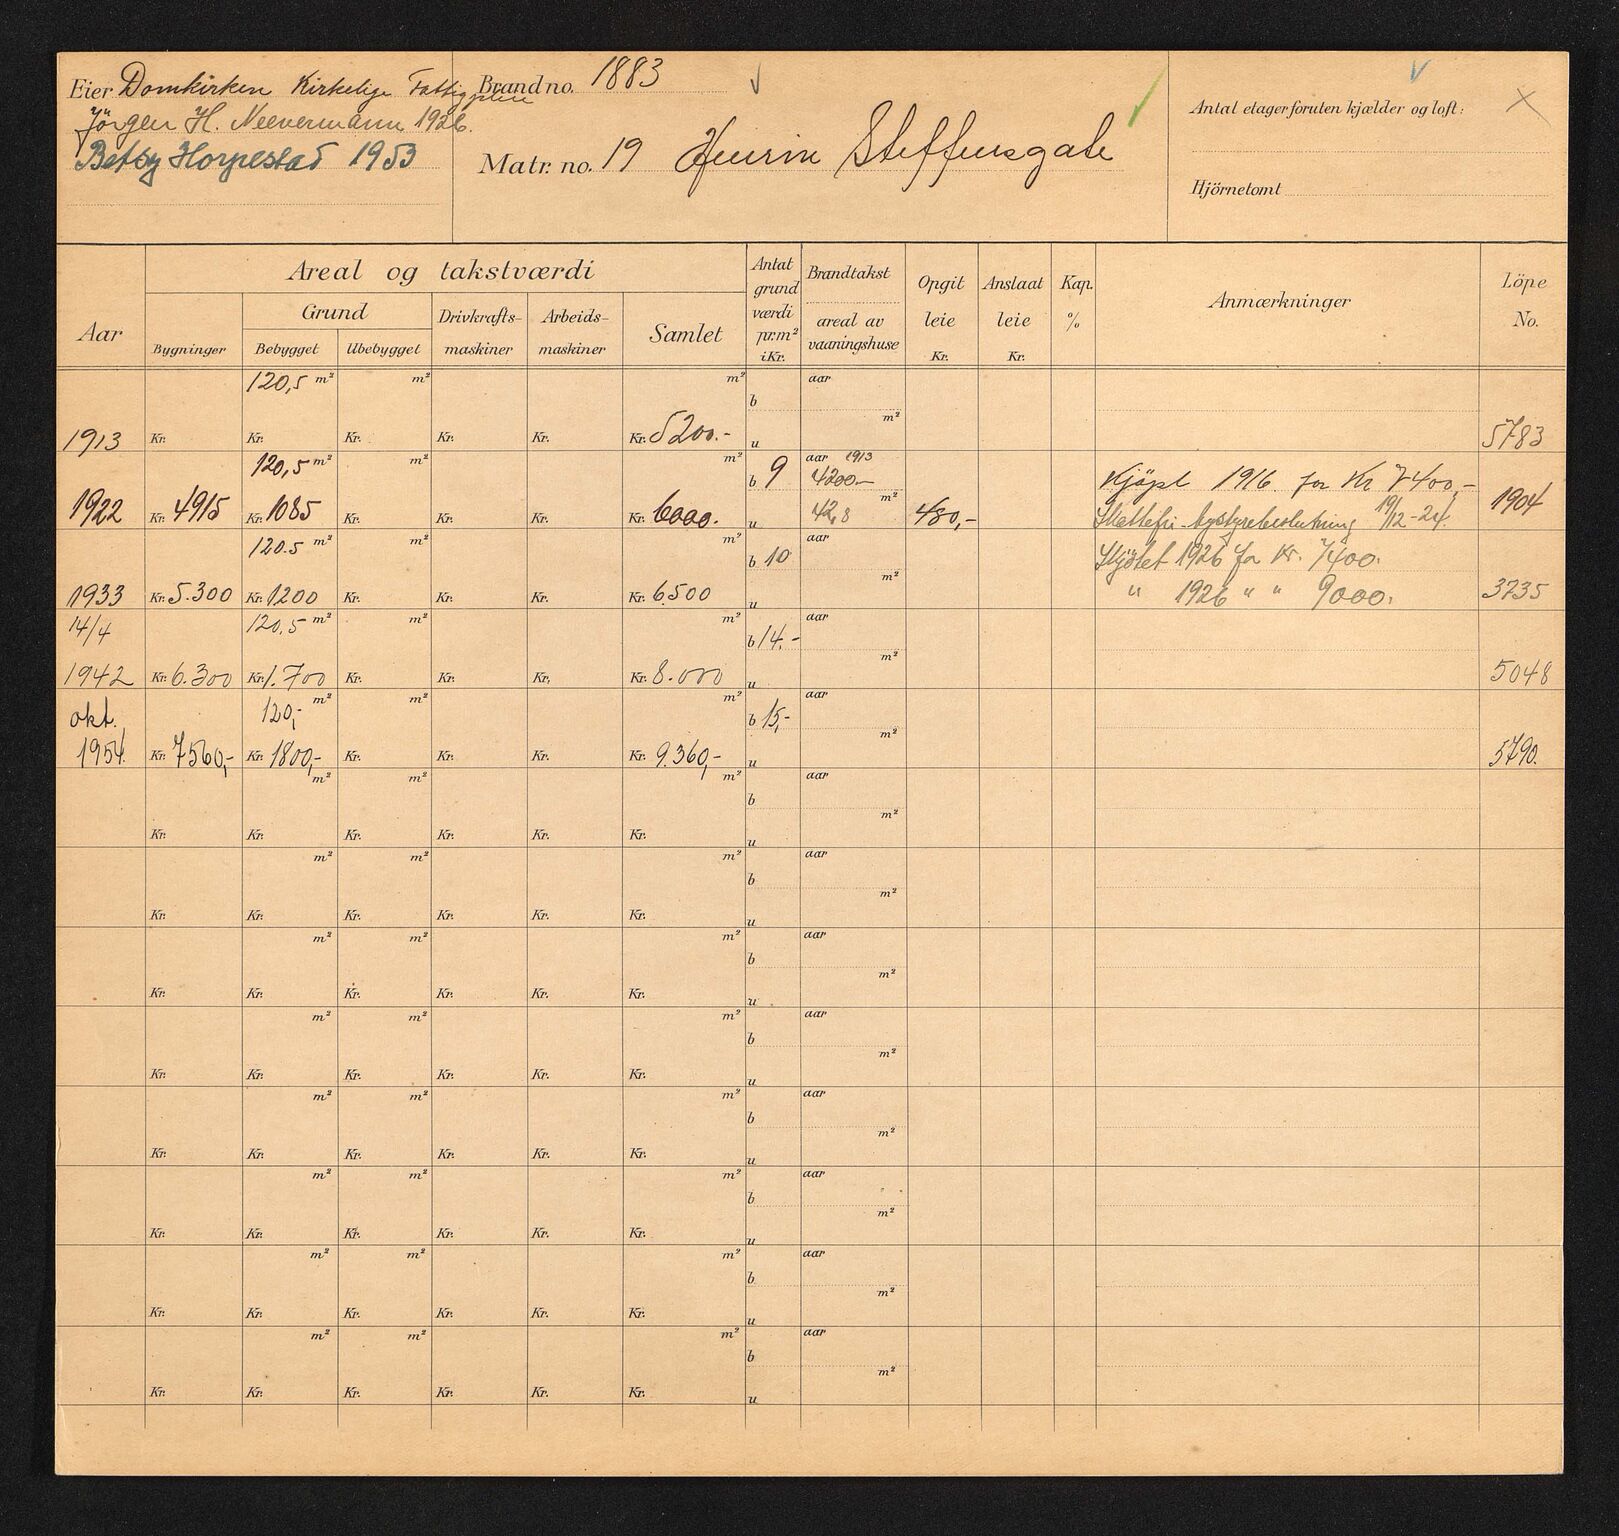 Eier Domkirken Kirkelige Fattigpleie
Jörgen H. Neevermann 1926.
Betsy Horpestad 1953
Brand no. 1883
Matr. no. 19 Henrik Steffensgate
Antal etager foruten kjælder og loft:
Hjörnetomt
Aar
Areal og takstværdi
Bygninger
Grund
Bebygget
Ubebygget
Drivkrafts-
maskiner
Arbeids-
maskiner
Samlet
Antat
grund
værdi
pr. m²
i Kr.
Brandtakst
areal av
vaaningshuse
Opgit
leie
Kr.
Anslaat
leie
Kr.
Kap.
%
Anmærkninger
Löpe
No.
120,5 m² m² m² b aar
1913 Kr. Kr. Kr. Kr. Kr. Kr. 5200.- u m² 5783
120,5 m² m² m² b 9 aar 1913 4200- Kjöpt 1916 for Kr 7400,-
1922 Kr. 4915 Kr. 1085 Kr. Kr. Kr. Kr. 6000. u m² 42,8 480,- Skattefri bystyrebeslutning 19/12-24. 1904
120.5 m² m² m² b 10 aar Skjötet 1926 for Kr. 7400.
1933 Kr. 5.300 Kr. 1200 Kr. Kr. Kr. Kr. 6500 u m² " 1926 " " 9000. 3735
14/4 120,5 m² m² m² b 14.- aar
1942 Kr. 6.300 Kr. 1.700 Kr. Kr. Kr. Kr. 8.000 u m² 5048
okt. 120,- m² m² m² b 15,- aar
1954. Kr. 7560,- Kr. 1800,- Kr. Kr. Kr. Kr. 9.360,- u m² 5790.
m² m² m² b aar
Kr. Kr. Kr. Kr. Kr. Kr. u m²
m² m² m² b aar
Kr. Kr. Kr. Kr. Kr. Kr. u m²
m² m² m² b aar
Kr. Kr. Kr. Kr. Kr. Kr. u m²
m² m² m² b aar
Kr. Kr. Kr. Kr. Kr. Kr. u m²
m² m² m² b aar
Kr. Kr. Kr. Kr. Kr. Kr. u m²
m² m² m² b aar
Kr. Kr. Kr. Kr. Kr. Kr. u m²
m² m² m² b aar
Kr. Kr. Kr. Kr. Kr. Kr. u m²
m² m² m² b aar
Kr. Kr. Kr. Kr. Kr. Kr. u m²